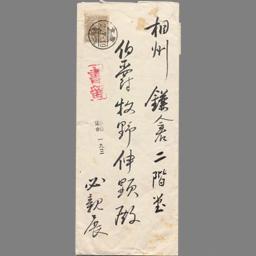 相州 鎌倉二階堂
伯爵牧野伸顕殿
必親展
書留
一九三